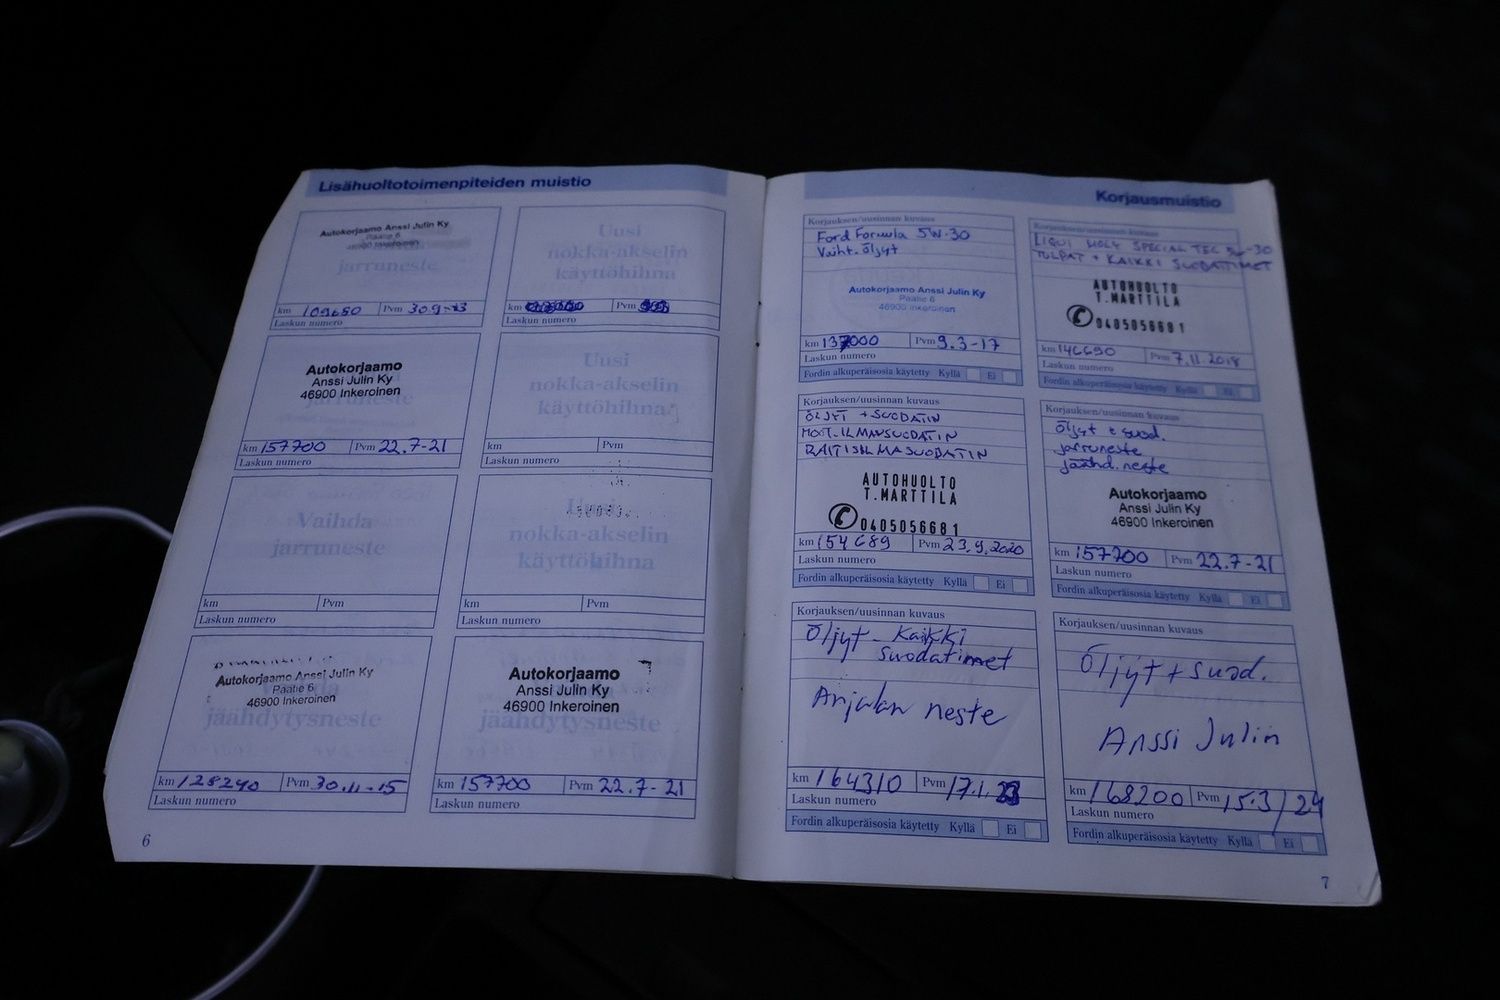 Lisähuoltotoimenpiteiden muistio
Autokorjaamo Anssi Julin Ky
Päätie 6
46900 Inkeroinen
jarruneste
km 109650 Pvm 30.9-13
Laskun numero
Uusi
nokka-akselin
käyttöhihna
km Pvm
Laskun numero
Autokorjaamo
Anssi Julin Ky
46900 Inkeroinen
jarruneste
km 157700 Pvm 22.7-21
Laskun numero
Uusi
nokka-akselin
käyttöhihna
km Pvm
Laskun numero
Vaihda
jarruneste
km Pvm
Laskun numero
Uusi
nokka-akselin
käyttöhihna
km Pvm
Laskun numero
Autokorjaamo Anssi Julin Ky
Päätie 6
46900 Inkeroinen
Vaihda
jäähdytysneste
km 128240 Pvm 30.11-15
Laskun numero
Autokorjaamo
Anssi Julin Ky
46900 Inkeroinen
jäähdytysneste
km 157700 Pvm 22.7-21
Laskun numero
6
Korjausmuistio
Korjauksen/uusinnan kuvaus
Ford Formula 5W-30
Vaiht. öljyt
Autokorjaamo Anssi Julin Ky
Päätie 6
46900 Inkeroinen
km 137000 Pvm 9.3-17
Laskun numero
Fordin alkuperäisosia käytetty Kyllä Ei
Korjauksen/uusinnan kuvaus
LIQUI MOLY SPECIAL TEC 5W-30
TULPAT + KAIKKI SUODATTIMET
AUTOHUOLTO
T.MARTTILA
0405056681
km 146690 Pvm 7.11.2018
Laskun numero
Fordin alkuperäisosia käytetty Kyllä Ei
Korjauksen/uusinnan kuvaus
ÖLJYT + SUODATIN
MOOT.ILMANSUODATIN
RAITISILMASUODATIN
AUTOHUOLTO
T.MARTTILA
0405056681
km 154689 Pvm 23.9.2020
Laskun numero
Fordin alkuperäisosia käytetty Kyllä Ei
Korjauksen/uusinnan kuvaus
öljyt + suod.
jarruneste
jäähd. neste
Autokorjaamo
Anssi Julin Ky
46900 Inkeroinen
km 157700 Pvm 22.7-21
Laskun numero
Fordin alkuperäisosia käytetty Kyllä Ei
Korjauksen/uusinnan kuvaus
Öljyt - Kaikki
suodatimet
Anjalan neste
km 164310 Pvm 17.1.23
Laskun numero
Fordin alkuperäisosia käytetty Kyllä Ei
Korjauksen/uusinnan kuvaus
Öljyt + suod.
Anssi Julin
km 168200 Pvm 15.3/24
Laskun numero
Fordin alkuperäisosia käytetty Kyllä Ei
7